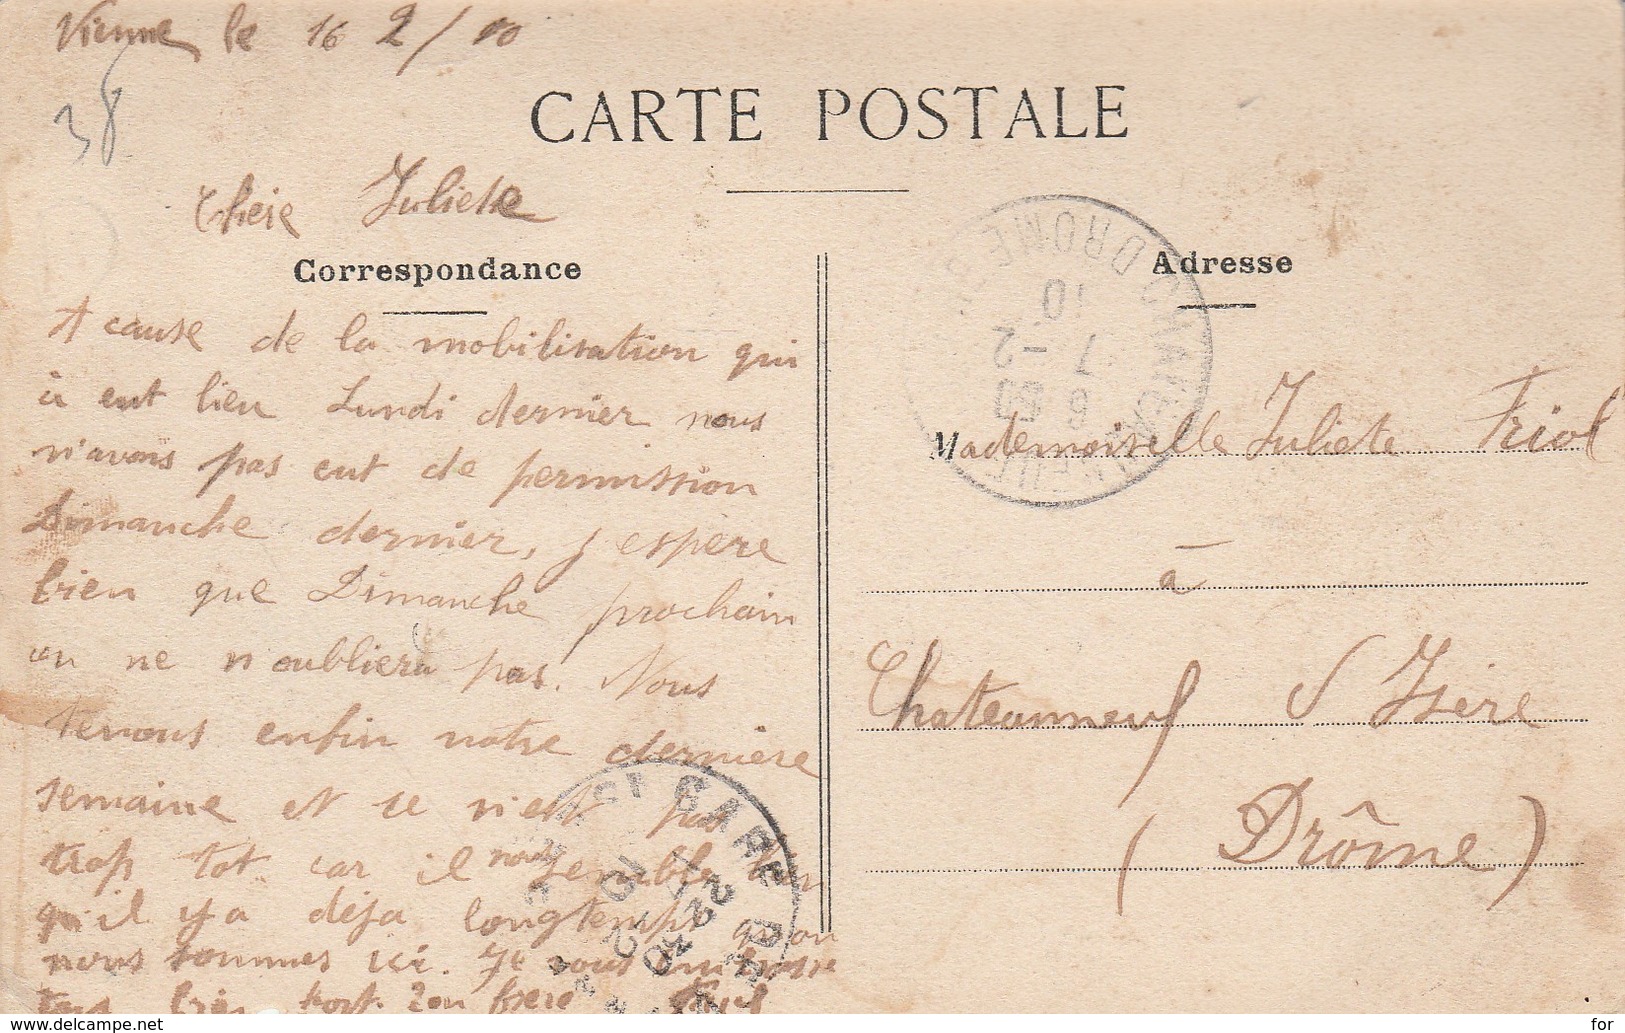 Vienne le 16 2/10
38
CARTE POSTALE
Chère Juliette
Correspondance
A cause de la mobilisation qui
à eut lieu Lundi dernier nous
n'avons pas eut de permission
Dimanche dernier, j espere
bien que Dimanche prochain
on ne n oubliera pas. Nous
tenons enfin notre derniere
semaine et ce n'est pas
trop tot car il nous semble bien
qu'il y a déja longtemps qu'on
nous sommes ici. Je vous embrasse
tous bien fort. Ton frère
GARE
Adresse
DROME
10
7 -2
6
Mademoiselle Juliete Friol
à
Chateauneuf s Isère
(Drôme)
for
www.delcampe.net